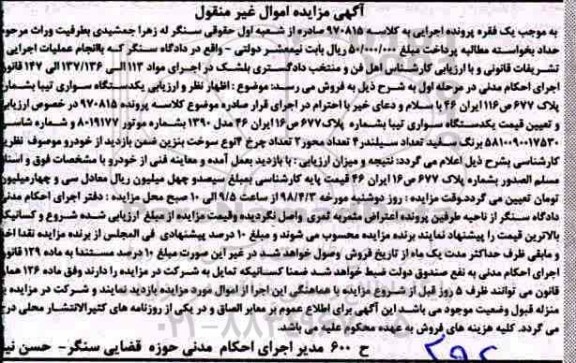 آگهی مزایده اموال غیر منقول
به موجب یک فقره پرونده اجرایی به کلاسه ۹۷۰۸۱۵ صادره از شعبه اول حقوقی سنگر له زهرا جمشیدی بطرفیت وراث مرحوم
حداد بخواسته مطالبه پرداخت مبلغ ۵۰/۰۰۰/۰۰۰ ریال بابت نیمعشر دولتی - واقع در دادگاه سنگر که باانجام عملیات اجرایی
تشریفات قانونی و با ارزیابی کارشناس اهل فن و منتخب دادگستری بلشک در اجرای مواد ۱۱۳ الی ۱۳۷/۱۳۶ الی ۱۴۷ قانون
اجرای احکام مدنی در مرحله اول به شرح ذیل به فروش می رسد: موضوع : اظهار نظر و ارزیابی یکدستگاه سواری تیبا بشماره
پلاک ۶۷۷ ص۱۱۶ ایران ۴۶ با سلام و دعای خیر با احترام در اجرای قرار صادره موضوع کلاسه پرونده ۹۷۰۸۱۵ در خصوص ارزیابی
و تعیین قیمت یکدستگاه سواری تیبا بشماره پلاک ۶۷۷ ص۱۶ ایران ۴۶ مدل ۱۳۹۰ بشماره موتور ۸۰۱۹۱۷۷ و شماره شاسی
۵۸۱۱۰۰۹۰۰۱۷۵۳۰ برنگ سفید تعداد سیلندر ۴ تعداد محور ۲ تعداد چرخ ۴ نوع سوخت بنزین ضمن بازدید از خودرو موصوف نظریه
کارشناسی بشرح ذیل اعلام می گردد: نتیجه و میزان ارزیابی : با بازدید بعمل آمده و معاینه فنی از خودرو با مشخصات فوق و اسناد
مسلم الصدور بشماره پلاک ۶۷۷ ص۱۶ ایران ۴۶ قیمت پایه کارشناسی بمبلغ سیصدو چهل میلیون ریال معادل سی و چهارمیلیون
تومان تعیین می گردد.وقت مزایده : روز دوشنبه مورخه ۹۸/۴/۳ از ساعت ۹/۵ الی ۱۰ صبح محل مزایده : دفتر اجرای احکام مدنی
دادگاه سنگر از ناحیه طرفین پرونده اعتراض مثمربه ثمری واصل نگردیده وقیمت مزایده از مبلغ ارزیابی شده شروع و کسانیکه
بالاترین قیمت را پیشنهاد نمایند برنده مزایده محسوب می شوند و مبلغ ۱۰ درصد پیشنهادی فی المجلس از برنده مزایده نقدا اخذ
و مابقی ظرف حداکثر مدت یک ماه از تاریخ فروش وصول خواهد شد در غیر این صورت مبلغ ۱۰ درصد مستندا به ماده ۱۲۹ قانون
اجرای احکام مدنی به نفع صندوق دولت ضبط خواهد شد ضمنا کسانیکه تمایل به شرکت در مزایده را دارند وفق ماده ۱۲۶ همان
قانون می توانند ظرف ۵ روز قبل از شروع مزایده با هماهنگی این اجرا از اموال مورد مزایده بازدید نمایند و شرکت در مزایده به
منزله قبول وضعیت موجود می باشد این آگهی برای اطلاع عموم بر معابر الصاق و در یکی از روزنامه های کثیرالانتشار محلی درج
می گردد. کلیه هزینه های فروش به عهده محکوم علیه می باشد.
ح ۶۰۰ مدیر اجرای احکام مدنی حوزه قضایی سنگر- حسن